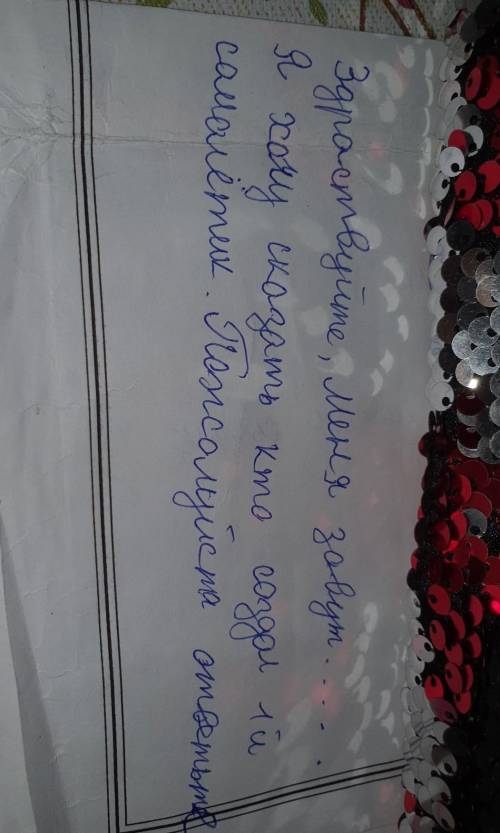 Здраствуйте, меня зовут.....
Я хочу сказать кто создал 1й
самолётик. Пожалуйста ответьте